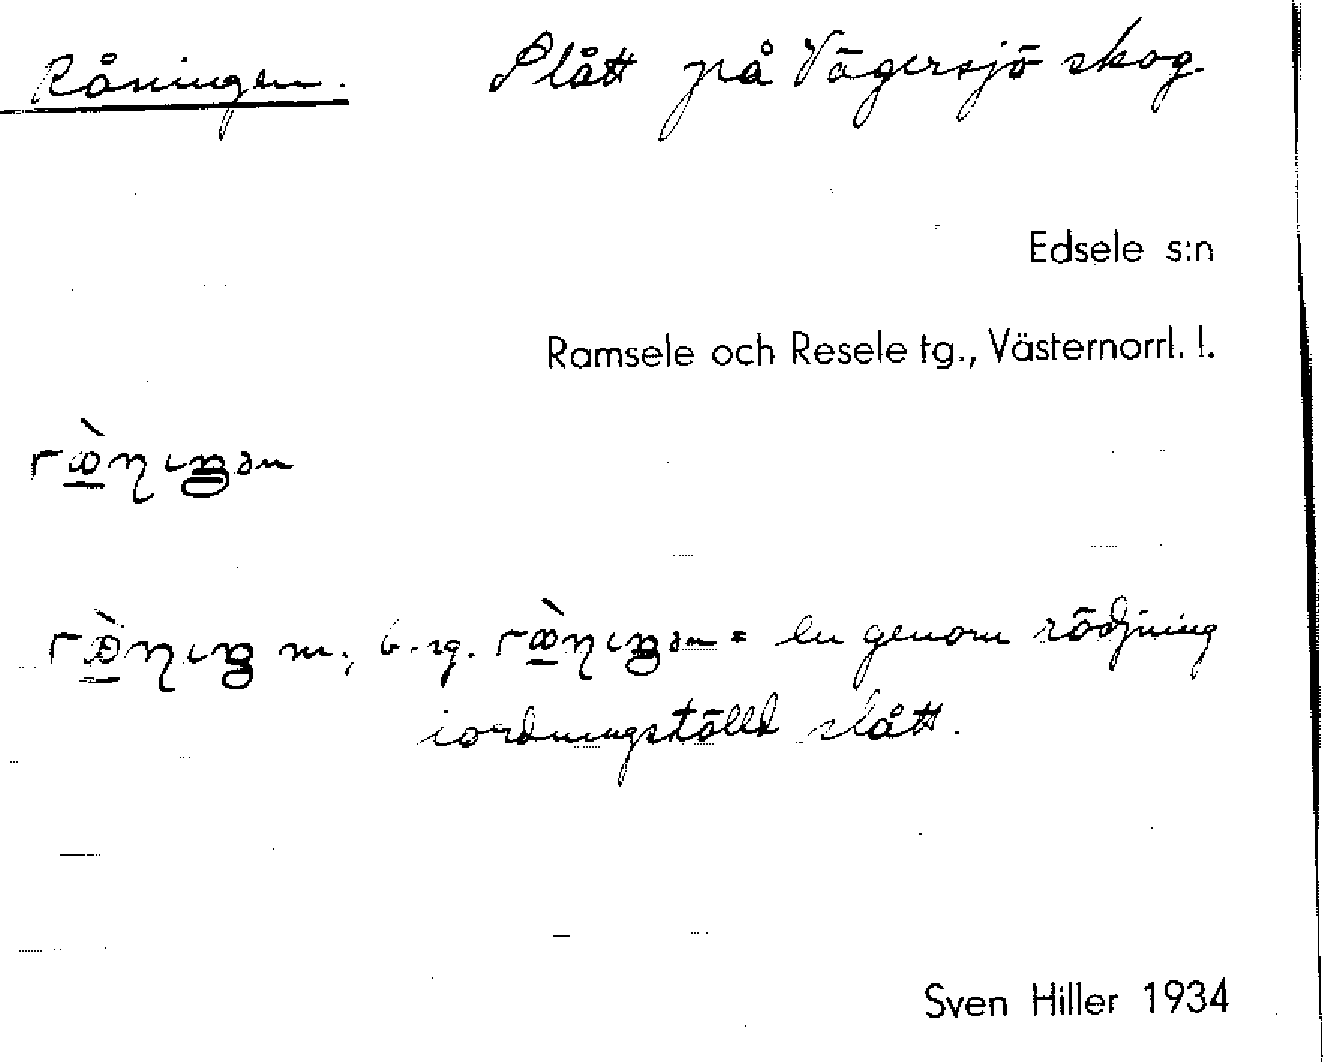 Råningen. Slått på Vägersjö skog.
Edsele s:n
Ramsele och Resele tg., Västernorrl. l.
m., b. sg. = en genom rödjning
iordningställd slått.
Sven Hiller 1934